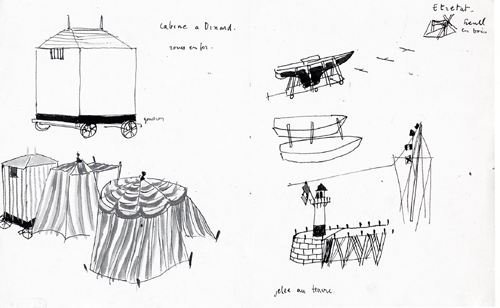 Cabine a Dinard.
roues en fer.
goudron
Etretat.
treuil
en bois
jetée au